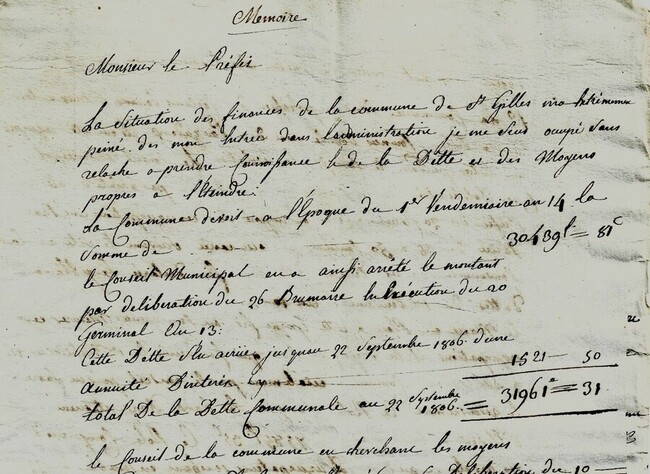 Memoire
Monsieur le Préfet
La Situation des finances de la commune de St Gilles m'a
peiné. des mon Entrée dans l'administration je me Suis ocupé Sans
relache a prendre Connoissance de la Dette et des Moyens
propres a l'Eteindre.
La Commune devoit a l'Epoque du 1er Vendemiaire an 14 la
Somme de 30439l = 81c
le Conseil Municipal en a ainsi arreté le montant
par deliberation du 26 Brumaire En Exécution du 20
Germinal an 13.
Cette Dette Sest acrue jusquau 22 Septembre 1806. d'une
annuité D'interêts 1521 — 50
total De la Dette Communale au 22 Septembre 1806. = 31961 = 31
le Conseil de la commune en cherchant les moyens
deliberation du 10